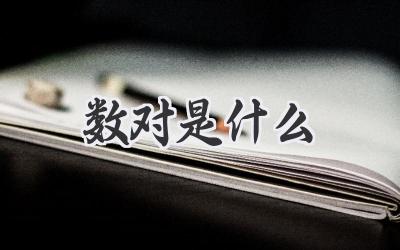 数对是什么